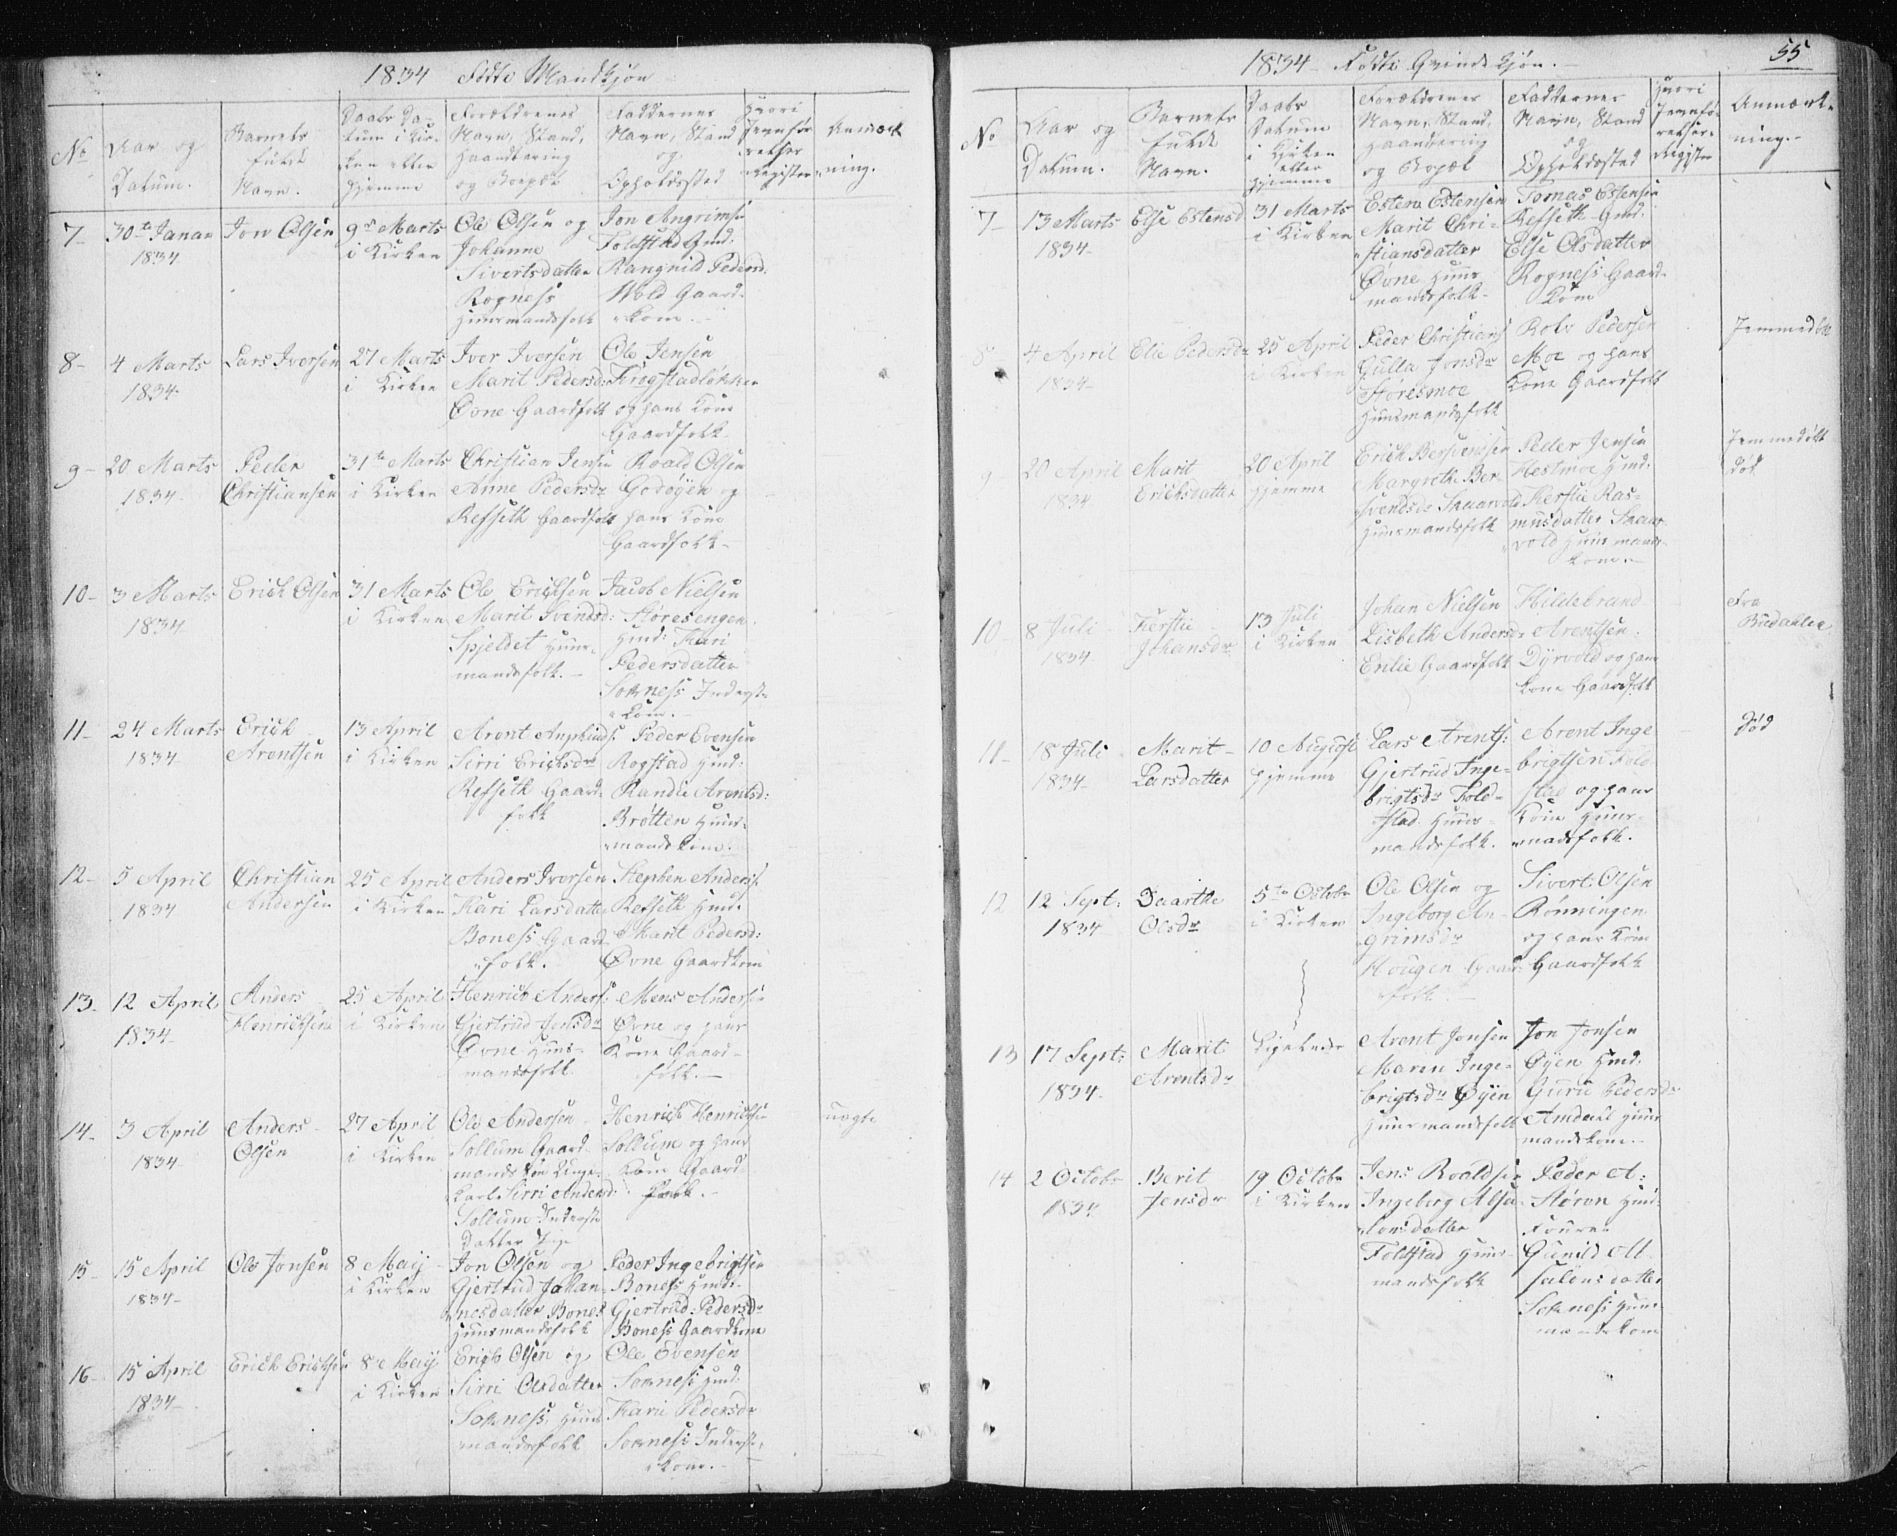 1834 Födte Mandkjøn
No
Aar og
Datum.
Barnets
fulde
Navn.
Daabs Da-
tum i Kir-
ken eller
hjemme
Forældrenes
Navn, Stand,
Haandtering
og Boepæl
Faddernes
Navn, Stand
og
Opholdssted
Hvori
Jevnför
relses
Register
Anmærk
ning.
7- 30te Januar
1834
Jon Olsen
9de Marts
i Kirken
Ole Olsen og
Johanne
Sivertsdatter
Rogness
Huusmandsfolk
Jon Angrims:
Foldstad Gmd.
Rangnild Pedersd.
Wold Gaard-
kone.-
8- 4 Marts
1834-
Lars Iversen
27 Marts
i Kirken
Iver Iversen
Marit Pedersd:
Øvne Gaardfolk
Ole Jensen
Krogstadløkken
og hans Kone
Gaardfolk-
9- 20 Marts
1834-
Peder
Christiansen
31te Marts
i Kirken
Christian Jensen
Anne Pedersdr
Refseth Gaardfolk
Roald Olsen
Godøyen og
hans Kone
Gaardfolk-
10- 3 Marts
1834-
Erich Olsen
31 Marts
i Kirken
Ole Ericksen
Marit Svendsd:
Spjeldet Huus-
mandsfolk.-
Jacob Nielsen
Støresengen
Hmd: Kari
Pedersdatter
Sokness Inderst-
kone.-
11- 24 Marts
1834
Erich
Arentsen
13 April
i Kirken
Arent Amphinds:
Sirri Ericksdr
Refseth Gaard-
folk
Peder Evensen
Rogstad Hmd:
Randie Arentsd:
Brøtten Huus-
mandskone.
12- 5 April
1834
Christian
Andersen
25 April
i Kirken
Anders Iversen
Kari Larsdatter
Boness Gaard
folk.-
Stephen Anders:
Refseth Hmd.
Marit Pedersd:
Øvne Gaardkone
13- 12 April
1834-
Anders
Henricksen
25 April
i Kirken
Henrick Anders:
Gjertrud Jensdr
Øvne Huus-
mandsfolk
Mens Andersen
Øvne og hans
Kone Gaard-
folk.-
14- 3 April
1834
Anders
Olsen
27 April
i Kirken
Ole Andersen
Sollum Gaard
mandssøn Unge-
karl Sirri Andersd:
Sollum Inderste
Datter Pige
Henrich Henricksen
Sollum og hans
Kone Gaard-
folk.-
uægte
15- 15 April
1834-
Ole Jonsen
8 Maij
i Kirken
Jon Olsen og
Gjertrud Johan-
nesdatter Bones
Huusmandsfolk
Peder Ingebrigtsen
Boness Hmd:
Gjertrud: Pedersdr
Boness Gaardkone
16- 15 April
1834-
Erich Ericksen
8 Maij
i Kirken
Erich Olsen og
Sirri Olsdatter
Sokness Huus
mandsfolk
Ole Evensen
Sokness Hmd:
Karie Pedersdr
Sokness Inderste-
kone.-
1834- Födte Qvindekjøn.-
55
No
Aar og
Datum.
Barnets
fulde
Navn.
Daabs
Datum
i Kirken
eller
hjemme
Forældrenes
Navn, Stand,
Haandtering
og Bopæl
Faddernes
Navn, Stand
og
Opholdssted
Hvori
Jevnfø-
relses-
Register
Anmærk-
ning.-
7- 13 Marts
1834-
Else Estensd
31 Marts
i Kirken
Esten Estensen
Marit Chri-
stiansdatter
Øvne Huus
mandsfolk-
Tomas Estensen
Refseth Gmd.
Else Olsdatter
Rogness Gaard-
kone
8 4 April
1834-
Elie Pedersdr
25 April
i Kirken
Peder Christians
Gulla Jonsdr
Støresmoe
Huusmandsfolk
Rolv Pedersen
Moe og hans
Kone Gaardfolk
9- 20 April
1834
Marit
Ericksdatter
20 April
hjemme
Erick Bersvensen
Margrethe Ber-
svendsdr Snuurvold
Huusmandsfolk
Peder Jensen
Hestmoe Hmd:
Kerstie Ras-
musdatter Snuur-
vold Huusmands-
kone.-
død
10- 8 Juli
1834
Kerstie
Johansdr
13 Juli
i Kirken
Johan Nielsen
Lisbeth Andersdr
Enlie Gaardfolk
Hildebrand
Arentsen
Dyrvold og hans
kone Gaardfolk
Fra
Budahlen
11- 18 Juli
1834-
Marit
Larsdatter
10 August
hjemme
Lars Arents:
Gjertrud Inge-
brigtsdr Fold-
stad. Huus-
mandsfolk.
Arent Inge
brigtsen Fold
stad og hans
Kone Huus-
mandsfolk.
død
12 12 Sept:
1834
Daarthe
Olsdr
5te Octobr
i Kirken
Ole Olsen og
Ingeborg An-
grimsdr
Hougen Gaard-
folk.-
Sivert: Olsen
Rønningen
og hans Kone
Gaardfolk
13 17 Sept:
1834.
Marit
Arentsdr
Ligeledes
Arent Jonsen
Maren Inge-
brigtsdr Øyen
Huusmandsfolk
Jon Jonsen
Øyen Hmd.
Guru Pedersdr
Amdahl Huus
mandskone.-
14 2 Octobr
1834
Berit
Jensdr
19 Octobr
i Kirken
Jens Roaldsen
Ingeborg Absa-
lonsdatter
Foldstad Huus-
mandsfolk
Peder A:
Støren
Gunild
Sokness Huus-
mandskone